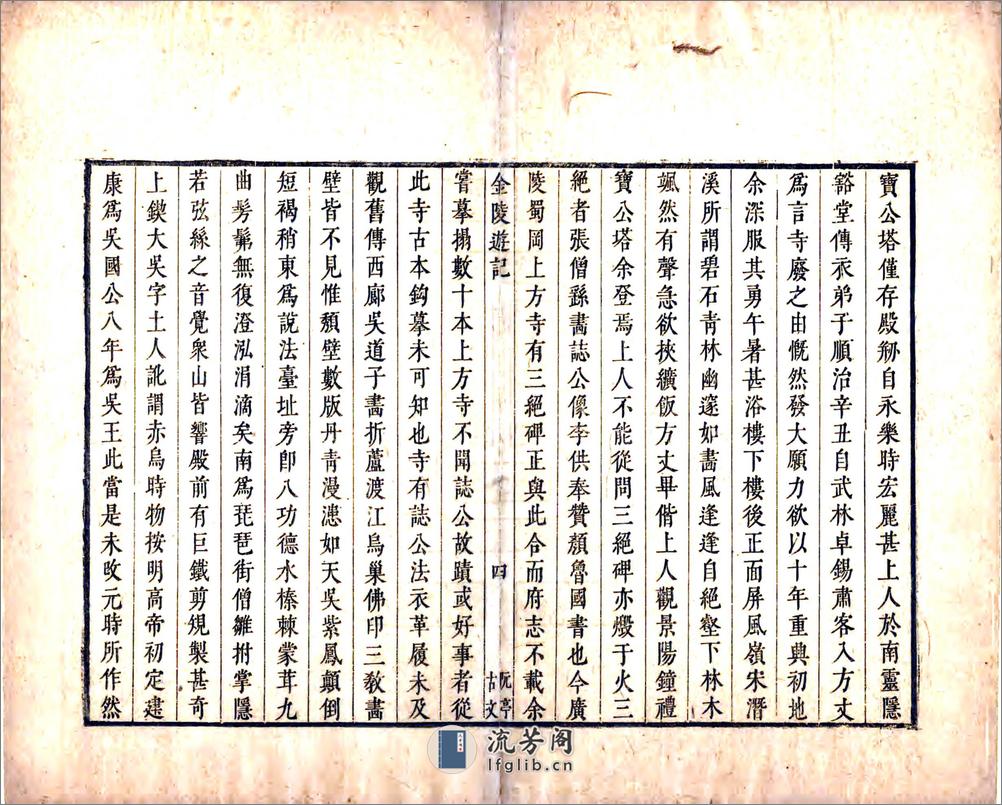 寶公塔僅存殿剏自永樂時宏麗甚上人於南靈隱
豁堂傳衣弟子順治辛丑自武林卓錫肅客入方丈
為言寺廢之由慨然發大願力欲以十年重典初地
余深服其勇午暑甚浴樓下樓後正面屏風嶺宋潛
溪所謂碧石青林幽邃如畵風逢逢自絕壑下林木
颯然有聲急欲挾纊飯方丈畢偕上人觀景陽鐘禮
寶公塔余登焉上人不能從問三絕碑亦燬于火三
絕者張僧繇畵誌公像李供奉贊顏魯國書也今廣
陵蜀岡上方寺有三絕碑正與此合而府志不載余
金陵遊記 四 阮亭古文
嘗摹搨數十本上方寺不聞誌公故蹟或好事者從
此寺古本鈎摹未可知也寺有誌公法衣革履未及
觀舊傳西廊吳道子畵折蘆渡江鳥巢佛印三教畵
壁皆不見惟頽壁數版丹青漫漶如天吳紫鳳顛倒
短褐稍東為說法臺址旁卽八功德水榛棘蒙茸九
曲髣髴無復澄泓涓滴矣南為琵琶街僧雛拊掌隱
若弦絲之音覺衆山皆響殿前有巨鐵剪規製甚奇
上鍥大吳字土人訛謂赤烏時物按明高帝初定建
康為吳國公八年為吳王此當是未攺元時所作然
流芳阁
lfglib.cn